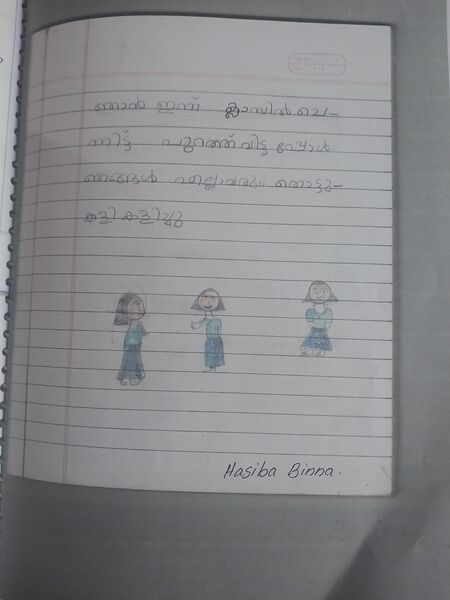 ഞാൻ ഇന്ന് ക്ലാസിൽ ചെ-
ന്നിട്ട് പുറത്ത് വിട്ടപ്പോൾ.
ഞങ്ങൾ എല്ലാവരും തൊട്ടു-
കളി കളിച്ചു
Hasiba Binna.